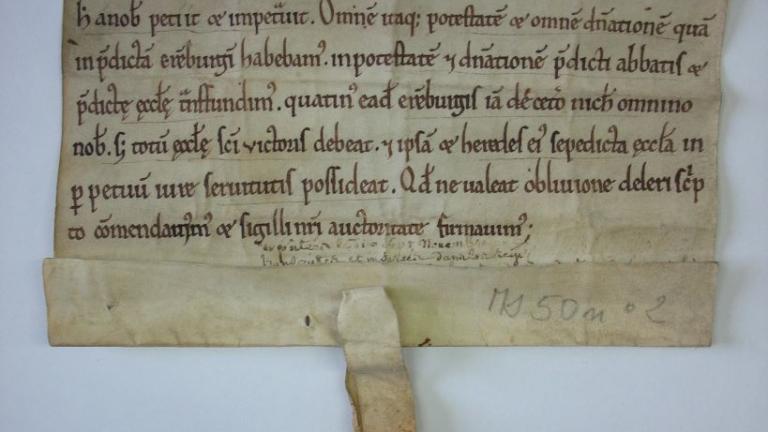 h̄ anob̄ petiit & impet̄uit. Om̄nē itaq; potestatē & omnē dn̄ationē quā
in p̄dictā erēburgī habebam᷒. in potestatē ⁊ dn̄ationē p̄dicti abbatis &
p̄dictę ęcclę t̄nsfundim᷒. quatin᷒ ead̄ erēburgis iā decet̄o nich̄ omnino
nob̄. ſ; totū ęcclę sc̄i victoris debeat. ⁊ ipsā & heredes ei᷒ sepedicta ęccl̄a in
ꝑpetuū iure seruitutis possideat. Qd̄ ne ualeat obliuione deleri sc̄p
to cōmendauim᷒ & sigilli nr̄i auctoritate firmauim᷒;
MS 50 n° 2